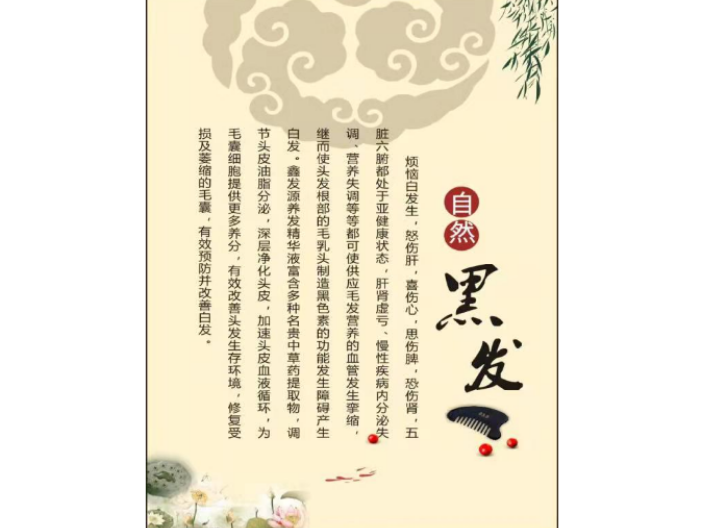 自然
黑发
烦恼白发生，怒伤肝，喜伤心，思伤脾，恐伤肾，五
脏六腑都处于亚健康状态，肝肾虚亏、慢性疾病内分泌失
调、营养失调等等都可使供应毛发营养的血管发生挛缩，
继而使头发根部的毛乳头制造黑色素的功能发生障碍产生
白发。鑫发源养发精华液富含多种名贵中草药提取物，调
节头皮油脂分泌，深层净化头皮，加速头皮血液循环，为
毛囊细胞提供更多养分，有效改善头发生存环境，修复受
损及萎缩的毛囊，有效预防并改善白发。